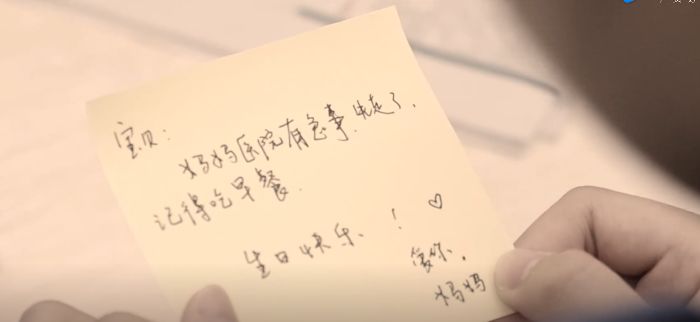 宝贝：
妈妈医院有急事，先走了，
记得吃早餐.
生日快乐！♡
爱你，
妈妈